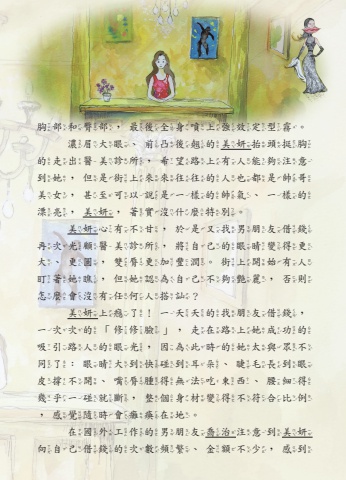 胸部和臀部，最後全身噴上強效定型霧。
濃眉大眼、前凸後翹的美妍抬頭挺胸
的走出醫美診所，希望路上有人能夠注意
到她，但是街上來來往往的人也都是帥哥
美女，甚至可以說是一樣的帥氣、一樣的
漂亮，美妍，著實沒什麼特別。
美妍心有不甘，於是又找男朋友借錢，
再次光顧醫美診所，將自己的眼睛變得更
大、更圓，雙唇更加豐潤。街上開始有人
盯著她瞧，但她認為自己不夠豔麗，否則
怎麼會沒有任何人搭訕？
美妍上癮了！一天天的找男朋友借錢，
一次次的「修修臉」，走在路上她成功的
吸引路人的眼光，因為此時的她太與眾不
同了：眼睛大到快碰到耳朵、睫毛長到眼
皮撐不開、嘴唇腫得無法吃東西、腰細得
幾乎一碰就斷，整個身材變得不符合比例
，感覺隨時會癱瘓在地。
在國外工作的男朋友喬治注意到美妍
向自己借錢的次數頻繁、金額不少，感到